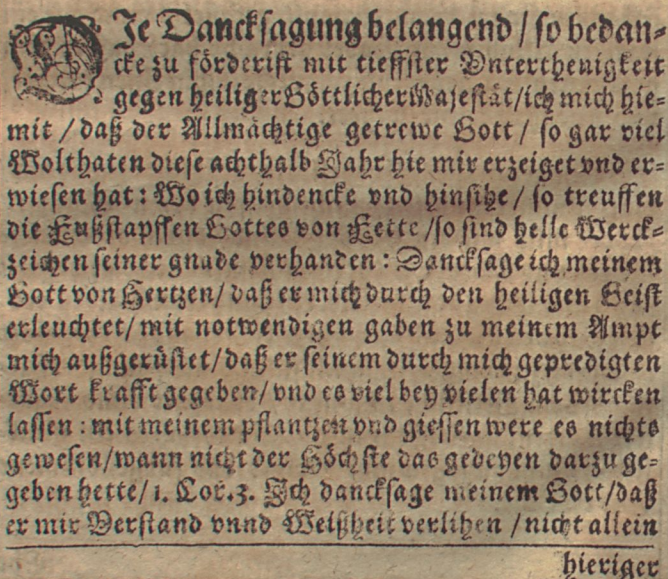 DJe Danckſagung belangend / ſo bedan⸗
cke zu förderiſt mit tieffſter Vnterthenigkeit
gegen heiliger Göttlicher Majeſtät/ich mich hie⸗
mit / daß der Allmächtige getrewe Gott / ſo gar viel
Wolthaten dieſe achthalb Jahr hie mir erzeiget vnd er⸗
wieſen hat: Wo ich hindencke vnd hinſitze / ſo treuffen
die Fußſtapffen Gottes von Fette /ſo ſind helle Werck⸗
zeichen ſeiner gnade verhanden: Danckſage ich meinem
Gott von Hertzen/ daß er mich durch den heiligen Geiſt
erleuchtet/ mit notwendigen gaben zu meinem Ampt
mich außgerüſtet/daß er ſeinem durch mich gepredigten
Wort krafft gegeben/ vnd es viel bey vielen hat wircken
laſſen : mit meinem pflantzen vnd gieſſen were es nichts
geweſen/wann nicht der Höchſte das gedeyen darzu ge⸗
geben hette/ 1. Cor.3. Jch danckſage meinem Gott/daß
er mir Verſtand vnnd Weißheit verlihen /nicht allein
hieriger